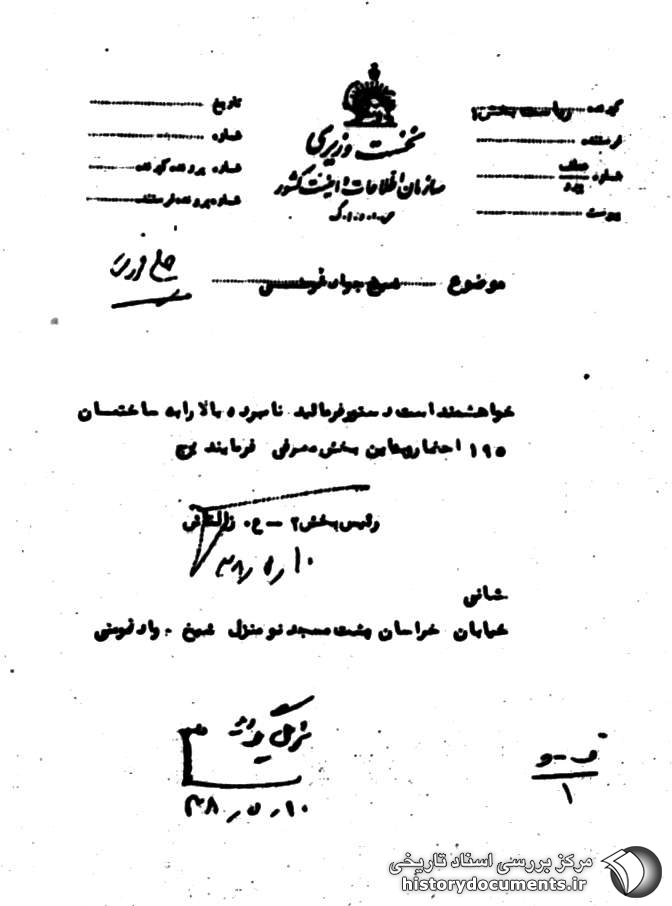 گیرنده ریاست بخش ۱
فرستنده
شماره
پیوست
نخست وزیری
سازمان اطلاعات و امنیت کشور
س.ا.و.ا.ک
تاریخ
شماره
شماره پرونده گیرنده
شماره پرونده فرستنده
موضوع شیخ جواد فومنی
خواهشمند است دستور فرمائید نامبرده بالا را به ساختمان
۱۹۵ احضار و به این بخش معرفی فرمایند
رئیس بخش ۲ - ع. زالتاش
۳۸٫۵٫۱۰
نشانی
خیابان خراسان پشت مسجد نو منزل شیخ جواد فومنی
۳۸٫۵٫۱۰
ف-و
۱
مرکز بررسی اسناد تاریخی
historydocuments.ir